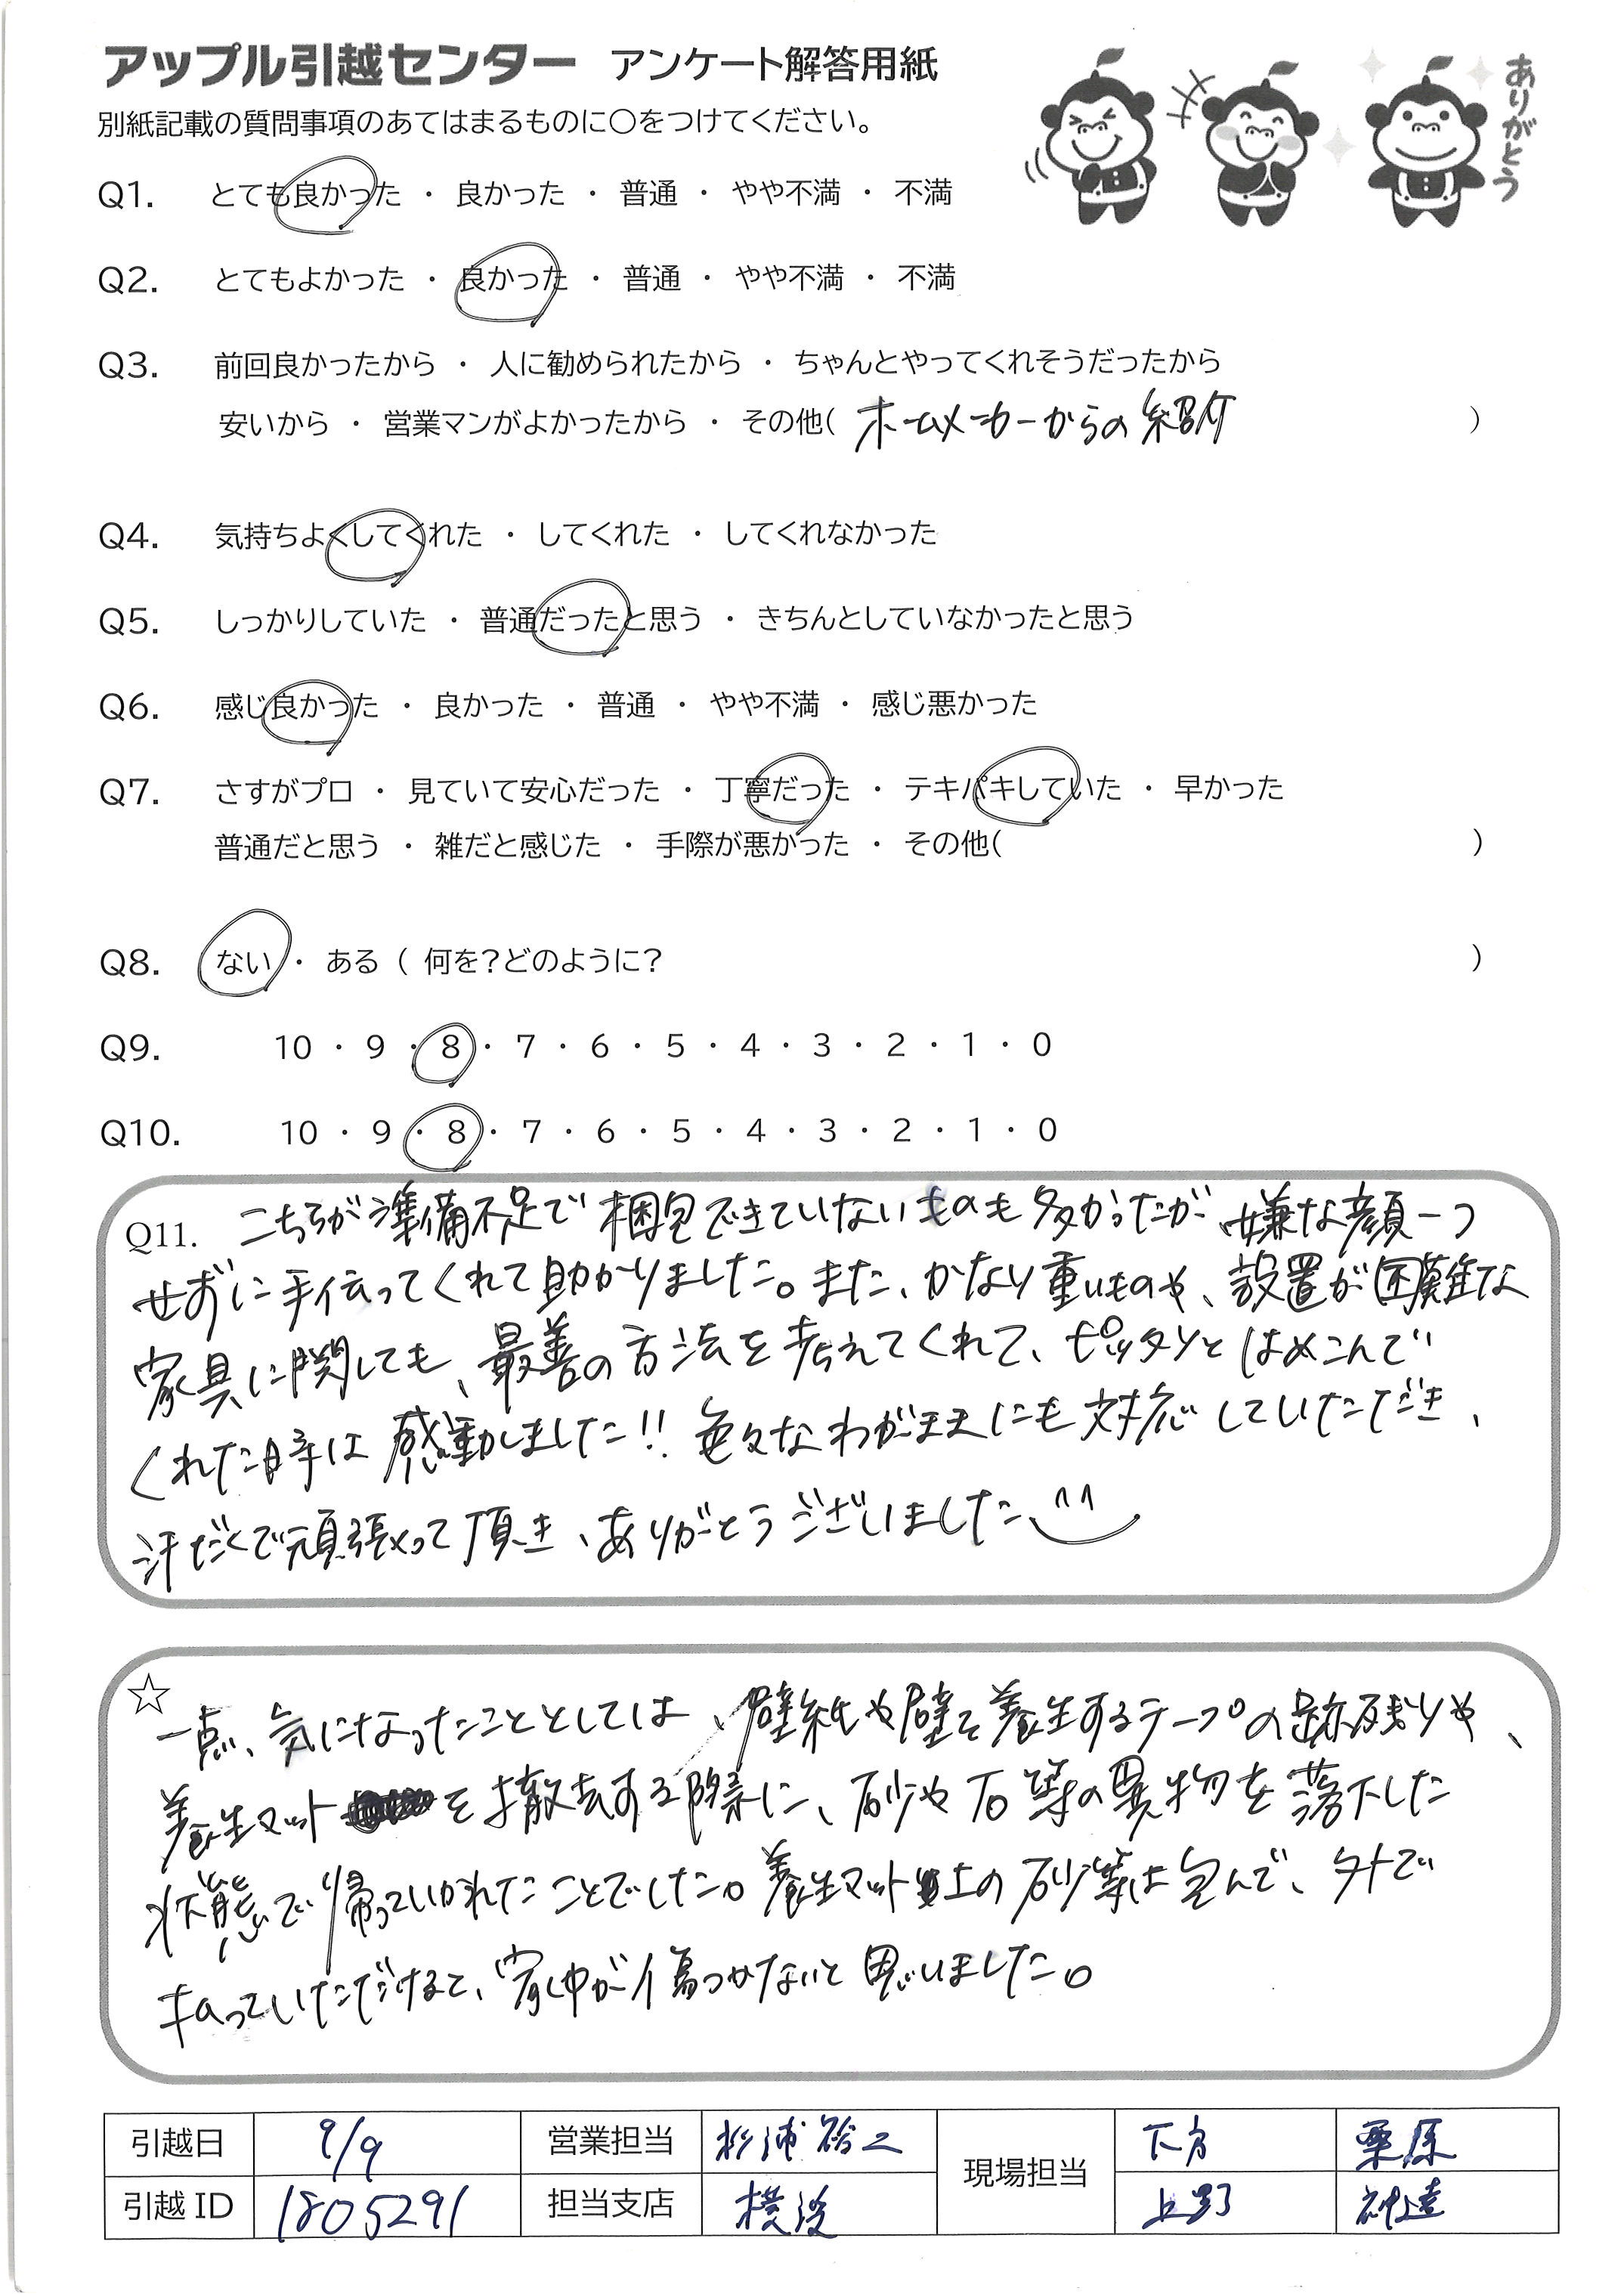 アップル引越センター アンケート解答用紙
別紙記載の質問事項のあてはまるものに○をつけてください。
ありがとう
Q1. とても良かった ・ 良かった ・ 普通 ・ やや不満 ・ 不満
Q2. とてもよかった ・ 良かった ・ 普通 ・ やや不満 ・ 不満
Q3. 前回良かったから ・ 人に勧められたから ・ ちゃんとやってくれそうだったから
安いから ・ 営業マンがよかったから ・ その他( ホームメーカーからの紹介 )
Q4. 気持ちよくしてくれた ・ してくれた ・ してくれなかった
Q5. しっかりしていた ・ 普通だったと思う ・ きちんとしていなかったと思う
Q6. 感じ良かった ・ 良かった ・ 普通 ・ やや不満 ・ 感じ悪かった
Q7. さすがプロ ・ 見ていて安心だった ・ 丁寧だった ・ テキパキしていた ・ 早かった
普通だと思う ・ 雑だと感じた ・ 手際が悪かった ・ その他( )
Q8. ない ・ ある ( 何を?どのように? )
Q9. 10 ・ 9 ・ 8 ・ 7 ・ 6 ・ 5 ・ 4 ・ 3 ・ 2 ・ 1 ・ 0
Q10. 10 ・ 9 ・ 8 ・ 7 ・ 6 ・ 5 ・ 4 ・ 3 ・ 2 ・ 1 ・ 0
Q11. こちらが準備不足で梱包できていないものも多かったが、嫌な顔一つ
せずに手伝ってくれて助かりました。また、かなり重いものや、設置が困難な
家具に関しても、最善の方法を考えてくれて、ピッタリとはめこんで
くれた時は感動しました!! 色々なわがままにも対応していただき、
汗だくで頑張って頂き、ありがとうございました
☆ 一点、気になったこととしては、壁紙や壁を養生するテープの跡残りや、
養生マット を撤去する際に、砂や石等の異物を落下した
状態で帰っていかれたことでした。養生マット上の砂等は包んで、外で
払っていただけると、家中が傷つかないと思いました。
引越日 9/9 営業担当 杉浦裕之 現場担当 下方 栗原
引越ID 1805291 担当支店 横浜 上野